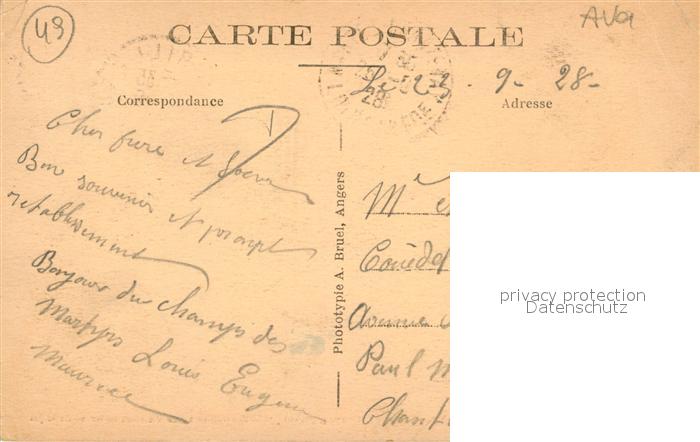 49
AVa
CARTE POSTALE
Le 23 - 9 - 28 -
Correspondance
Adresse
Cher frere et Soeur
Bon souvenir et prompt
retablissement
Bonjour du champs des
Martyrs Louis Eugene
Maurice
Phototypie A. Bruel, Angers
Mr e
Couëd
Avenue
Paul M
Chant
privacy protection
Datenschutz